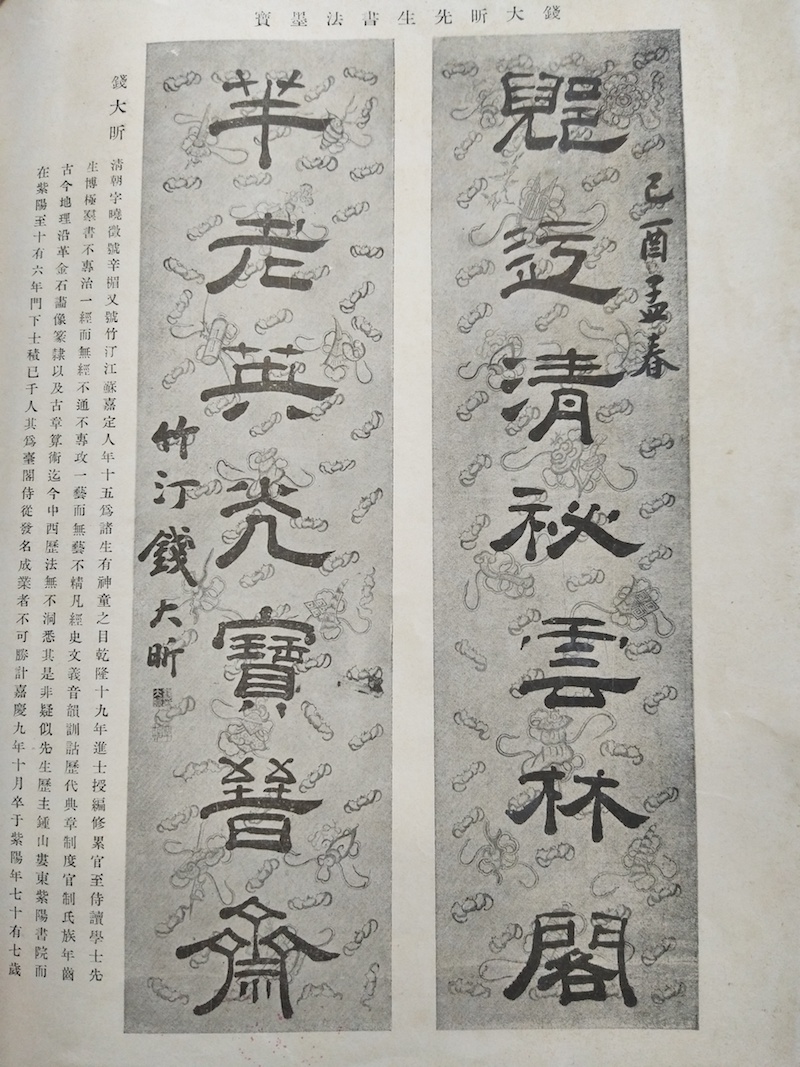 錢大昕先生書法墨寶
己酉孟春
郳迃清祕雲林閣
羋老英光寶晉齋
竹汀錢大昕
錢大昕
清朝字曉徵號辛楣又號竹汀江蘇嘉定人年十五爲諸生有神童之目乾隆十九年進士授編修累官至侍讀學士先
生博極羣書不專治一經而無經不通不專攻一藝而無藝不精凡經史文義音韻訓詁歷代典章制度官制氏族年齒
古今地理沿革金石畵像篆隸以及古章算術迄今中西歷法無不洞悉其是非疑似先生歷主鍾山婁東紫陽書院而
在紫陽至十有六年門下士積已千人其爲臺閣侍從發名成業者不可勝計嘉慶九年十月卒于紫陽年七十有七歲